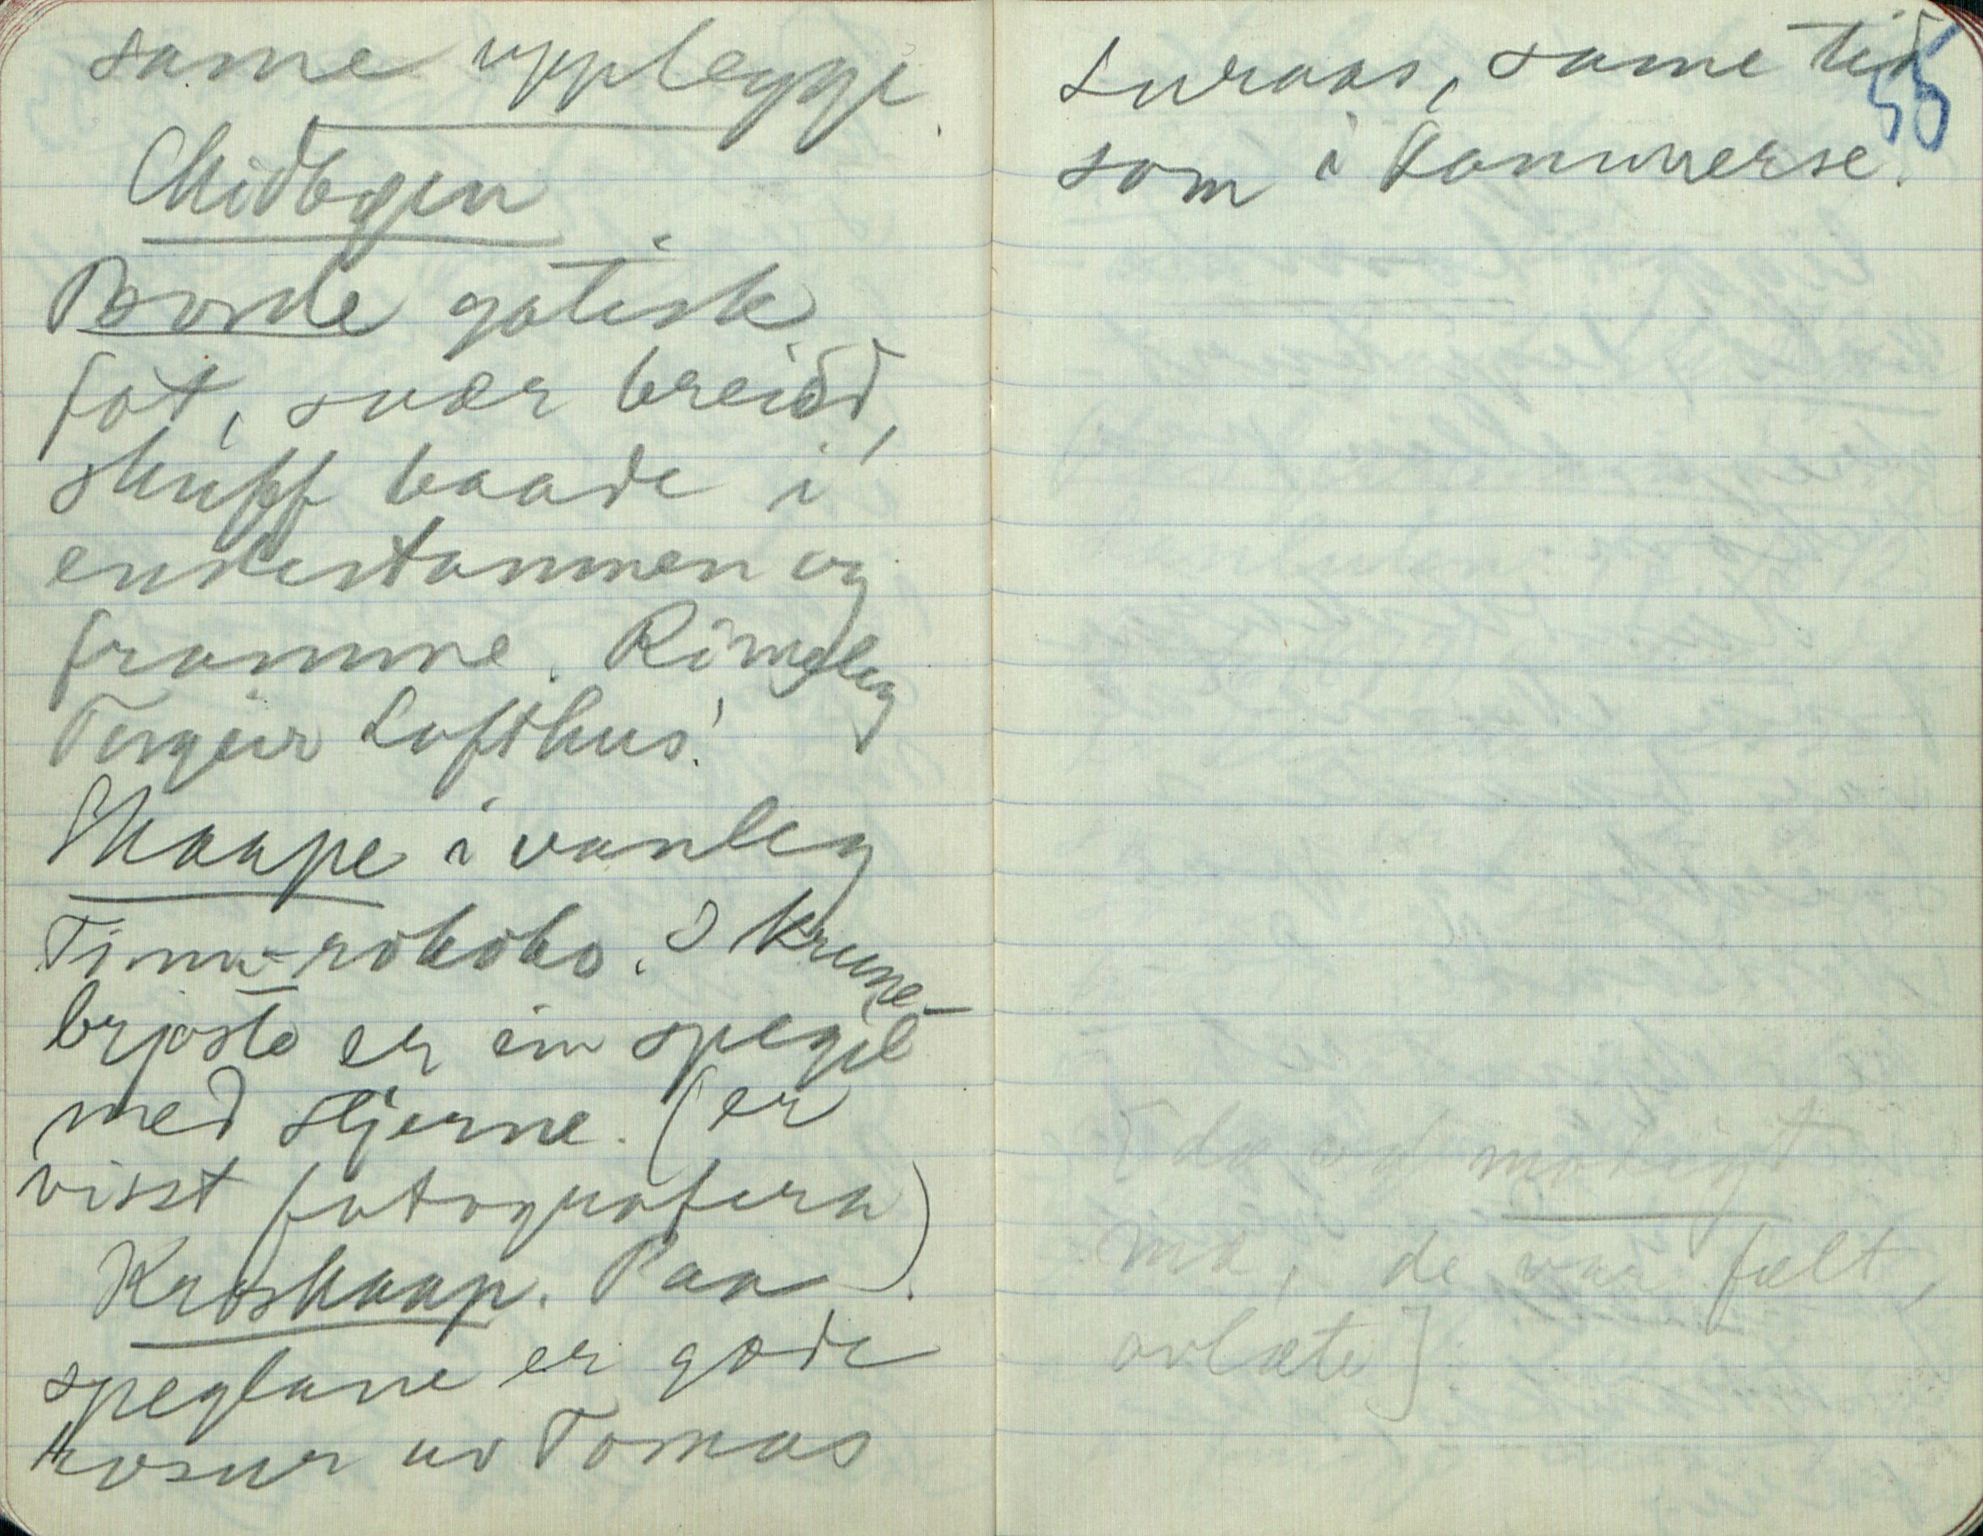 same upplegge
Midbøen
Borde gotisk
fot, svær breidd,
skuff baade i
endestammen og
framme. Rimeleg
Torgeir Lofthus!
Skaape i vanleg
Tinn-rokoko. I krune-
brjoste er ein spegil
med stjerne. (er
visst fotografera)
Kroskaap. Paa
speglane er gode
rosur av Tomas
Luraas, same tid
som i kammerse.
55
[da va
ma, de var fælt,
avlæte]